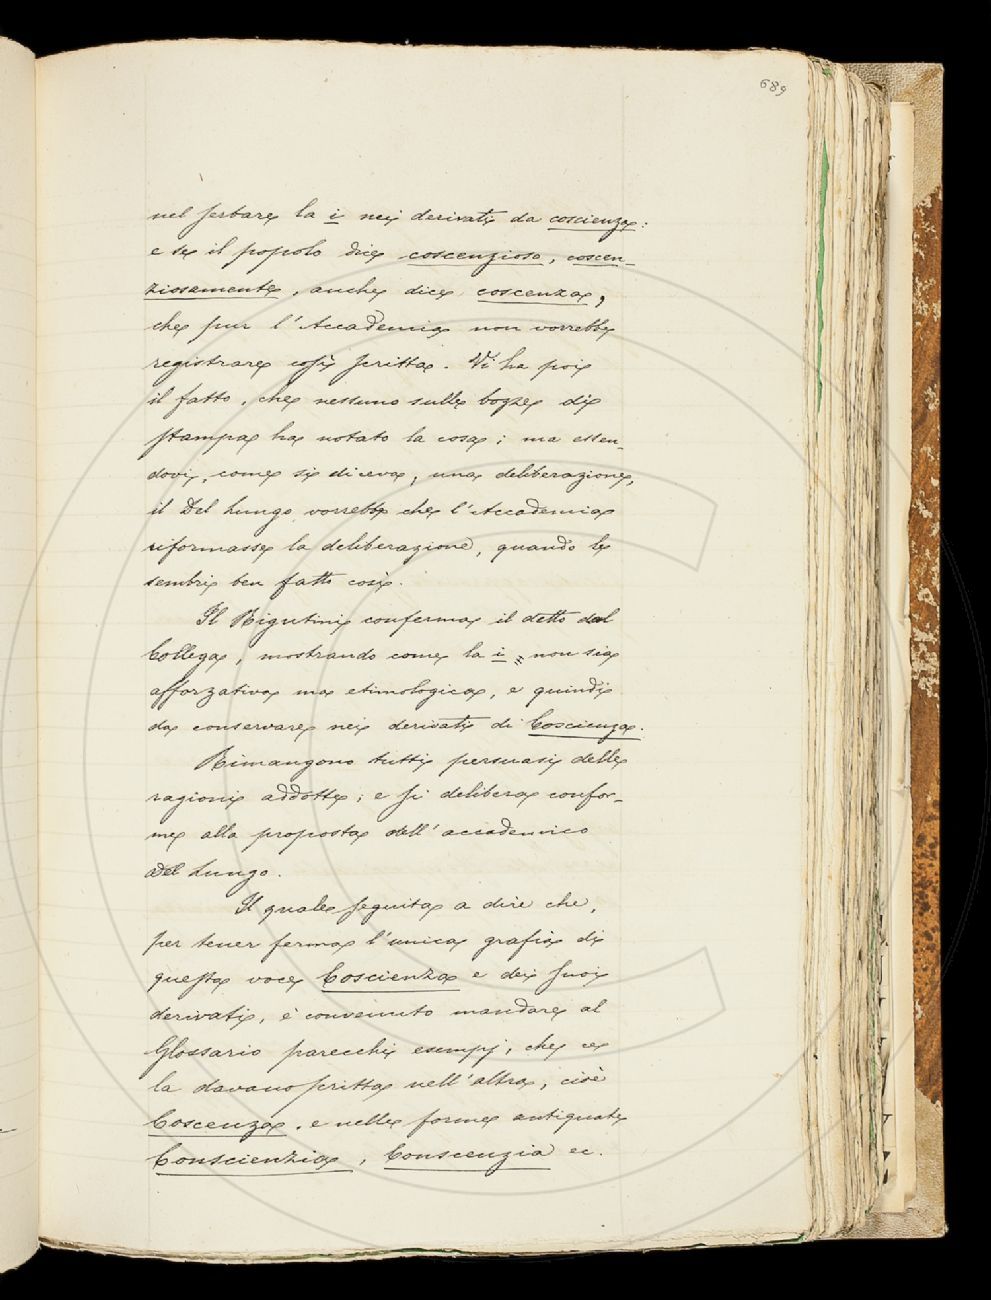 689
nel serbare la i nei derivati da coscienza:
e se il popolo dice coscenzioso, coscen-
ziosamente, anche dice coscenza,
che pur l'Accademia non vorrebbe
registrare così scritta. Vi ha poi
il fatto, che nessuno sulle bozze di
stampa ha notato la cosa; ma essen-
dovi, come si diceva, una deliberazione,
il Del Lungo vorrebbe che l'Accademia
riformasse la deliberazione, quando le
sembri ben fatto così.
Il Rigutini conferma il detto dal
Collega, mostrando come la i non sia
afforzativa ma etimologica, e quindi
da conservare nei derivati di Coscienza.
Rimangono tutti persuasi delle
ragioni addotte; e si delibera confor-
me alla proposta dell'accademico
Del Lungo.
Il quale seguita a dire che,
per tener ferma l'unica grafia di
questa voce Coscienza e dei suoi
derivati, è convenuto mandare al
Glossario parecchi esempj, che ce
la davano scritta nell'altra, cioè
Coscenza, e nelle forme antiquate
Conscienzia, Conscenzia ec.